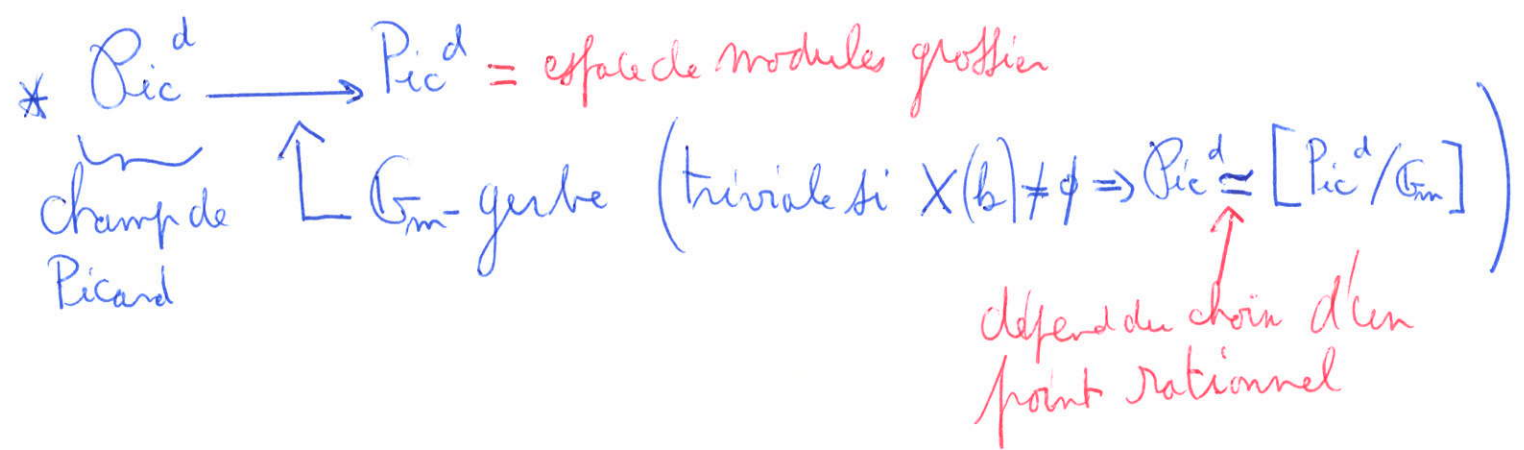 * 𝒫ic^d ⟶ Pic^d = espace de modules grossier
champ de Picard
𝔾_m-gerbe (triviale si X(k) ≠ ∅ ⇒ 𝒫ic^d ≃ [Pic^d/𝔾_m])
dépend du choix d'un
point rationnel